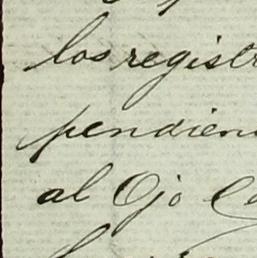 los registr
pendien
al Ojo Ca